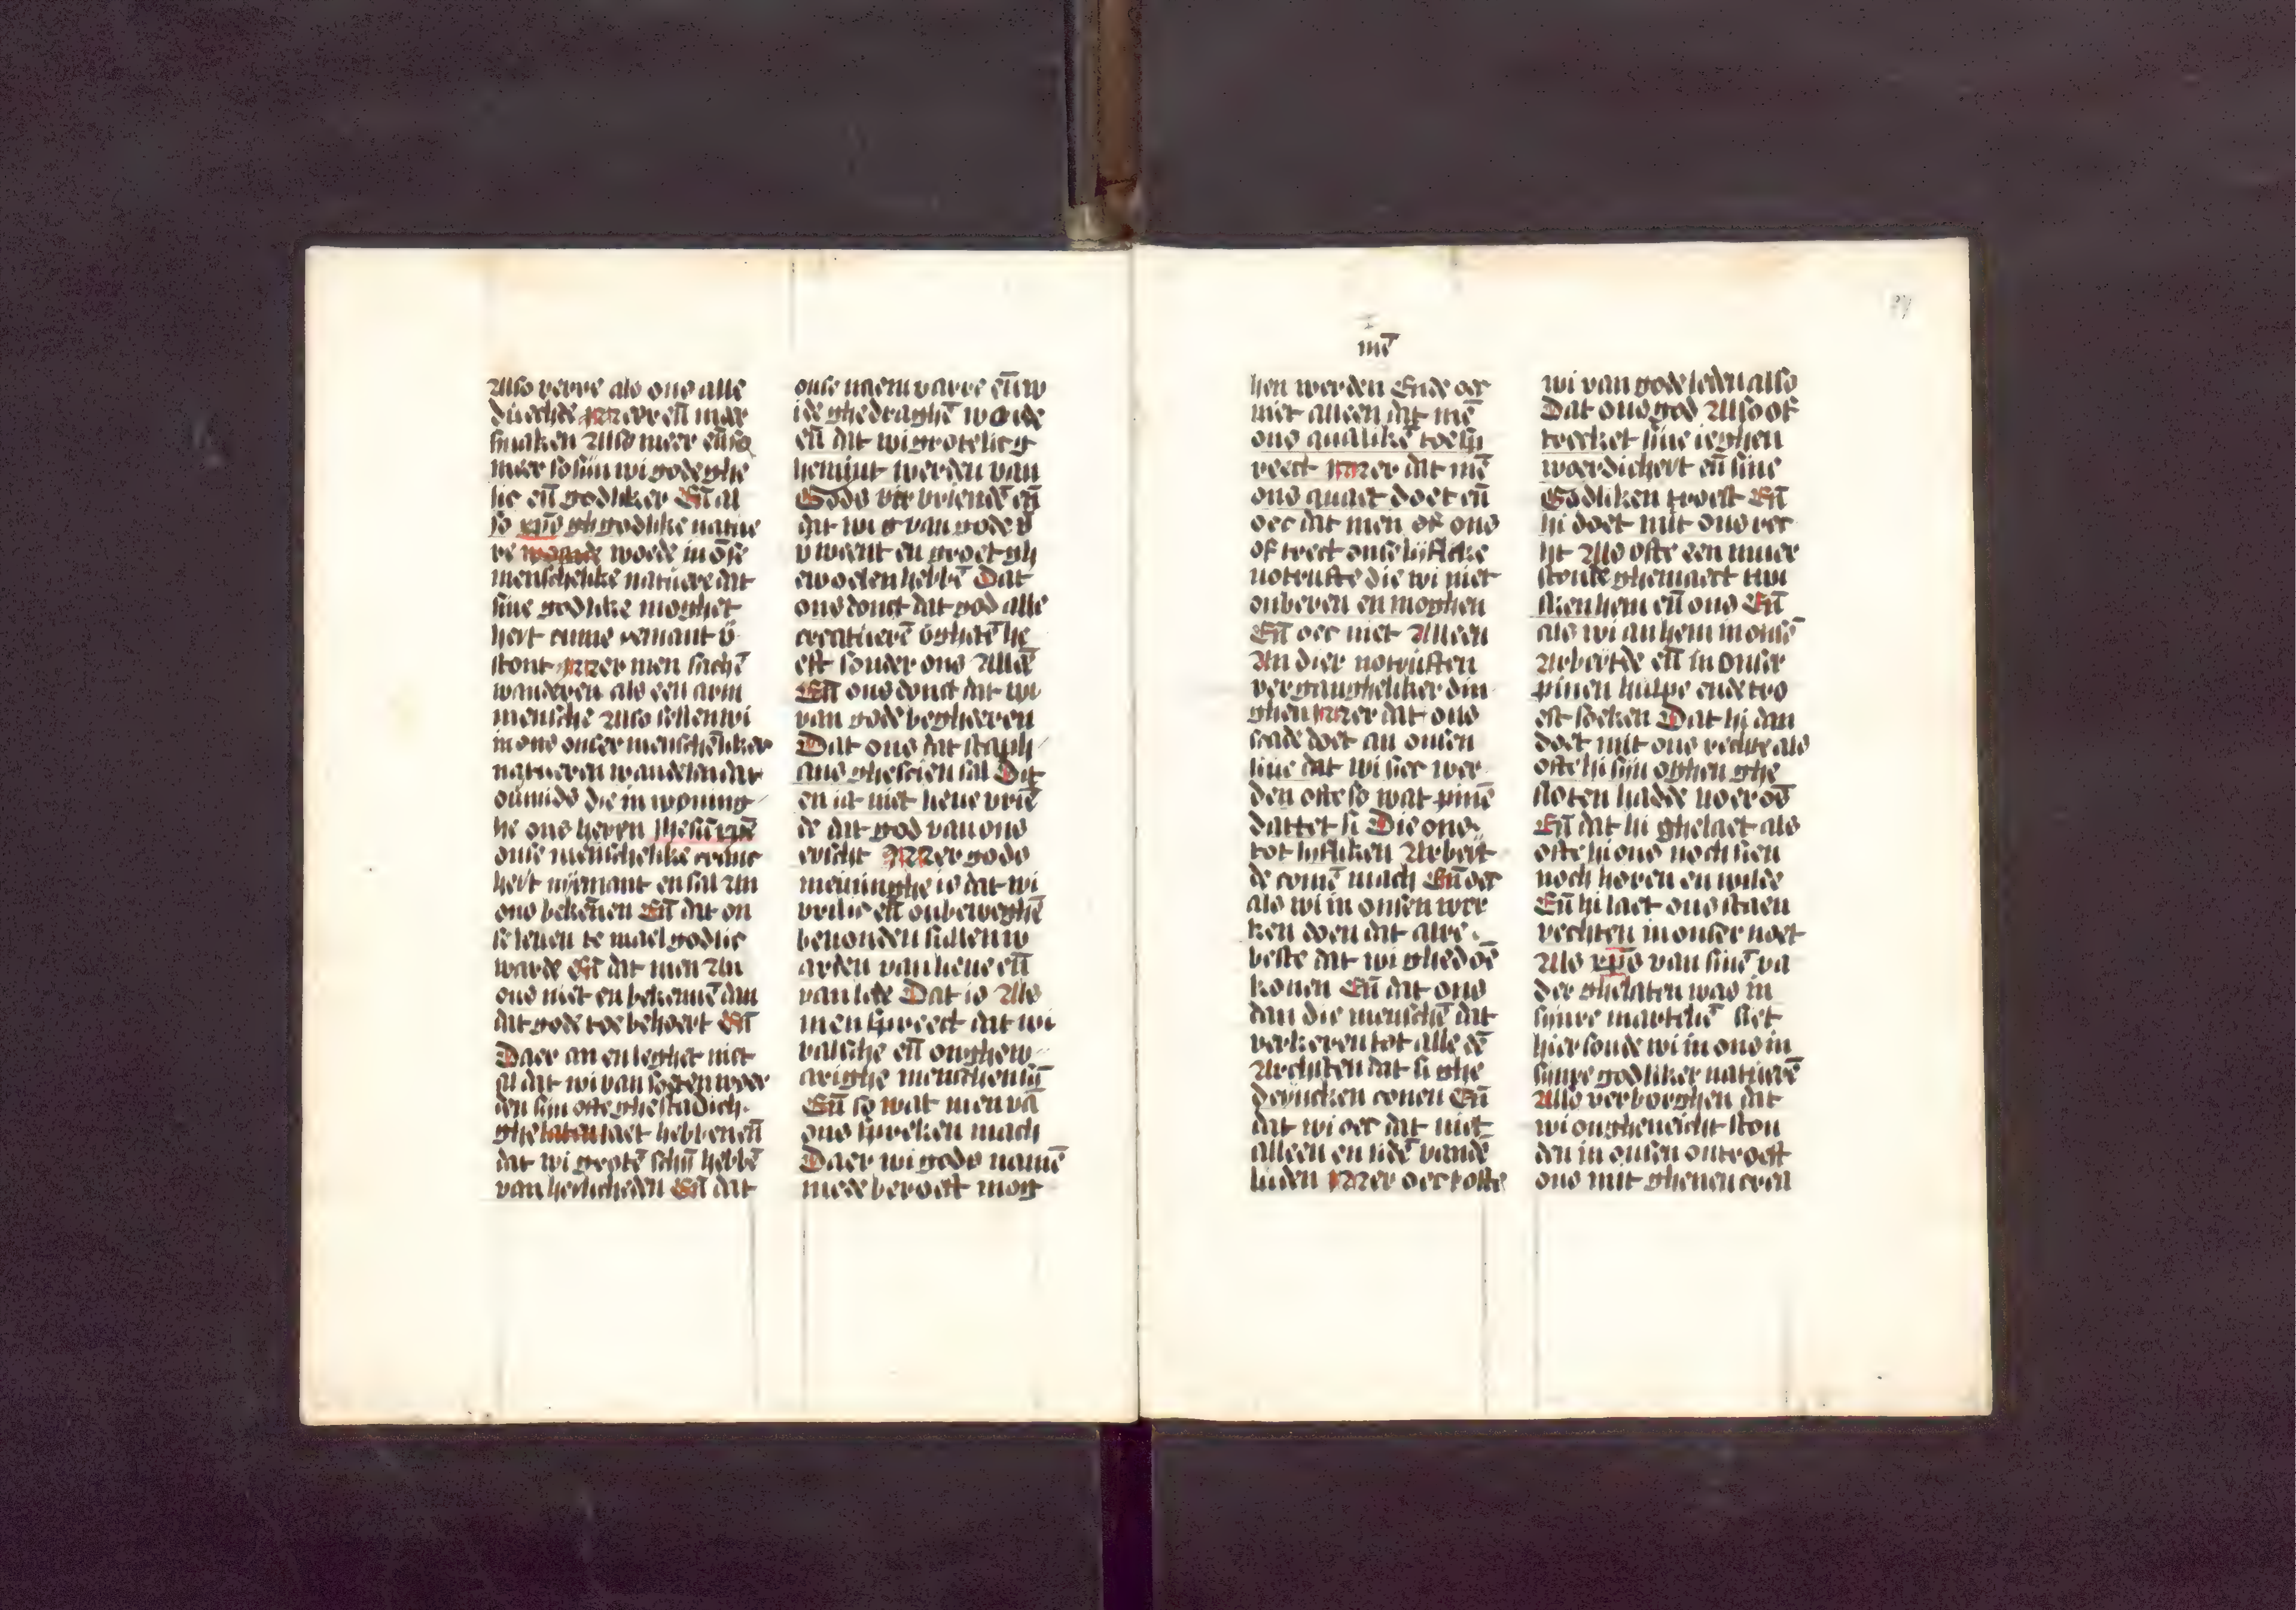 Also verre als ons alle
duechde Mer eñ meer
smaken Also meer eñ so
meer so sijn wi gode ghe
lic eñ godliker Eñ al
so xpūs godlike natue
re woede in ōse
menschelike natuere dat
sine godlike moghet
heit nemant v̄
stont Mer men sachē
wanderen als een arm
mensche Also sellen wi
in ons onser menschēliker
natueren wandelen dat
ouermids die in woning
he ons heren ihesu xpē
onse menschelike cranc
heit nyemant en sal An
ons bekēnen Eñ dat on
se leuen te mael godlic
warde Eñ dat men An
ons niet en bekennē dan
dat gode toe behoert Eñ
Daer an en leghet niet
al dat wi van soeten woer
den sijn ofte ghestadich
ghe laet hebben eñ
dat wi grotē schijn hebbē
van heilicheden Eñ dat
onse naem varre eñ w
ide ghedraghē worde
eñ dat wi grotelic g
hemijnt werden van
Gods vrienden eñ
dat wi van gode v
v went en groet gh
ewoelen hebbē Dat
ons donct dat god alle
creatuerē v̄gheten he
eft sonder ons Allee
Eñ ons donct dat wi
van gode begheeren
Dat ons dat staph
ans ghescien sal Dit
en is niet heue vrie
de dat god van ons
eischt Mer gods
meininghe is dat wi
vrilic eñ onbeweghē
beuonden sullen w
arden van heue eñ
van lede Dat is Als
men spreect dat wi
valsche eñ onghew
arighe menschen sij
Eñ so wat men vā
ons spreken mach
Daer wi gods namē
mede beroeft mog
mē
hen werden Ende oec
niet alleen dat mē
ons qualikē toe sp
reect Mer dat mē
ons quaet doet eñ
oec dat men of ons
of trect onse lijflicke
notrufte die wi niet
onberen en moghen
Eñ oec niet Alleen
An dier notruften
vergangheliker din
ghen Mer dat ons
scade doet an onsen
liue dat wi siec wer
den ofte so wat pinē
dattet si Die ons
tot lijfliken Arbeit
de comē mach Eñ oec
als wi in onsen wer
ken doen dat alre
beste dat wi ghedoē
konen Eñ dat ons
dan die menschē dat
verkeren tot alle dē
Archsten dat si ghe
dencken conen Eñ
dat wi oec dat niet
alleen en lidē vandē
luden Mer oec tofte
wi van gode leden also
Dat ons god Also of
trecket sine ieghen
woerdicheit eñ sine
Godliken troest Eñ
hi doet mit ons rec
ht Also ofte een muer
stonde ghemaect twi
sken hem eñ ons Eñ
als wi an hem in onsē
Arbeitde eñ in onser
pinen hulpe ende tro
est soeken Dat hi dan
doet mit ons rechte als
ofte hi sijn oghen ghe
sloten hadde voer ōs
Eñ dat hi ghelaet als
ofte hi ons noch sien
noch horen en wilde
Eñ hi laet ons staen
vechten in onser noet
Als xpūs van sinē va
der ghelaten was in
sijnre martelien Siet
hier soude wi in ons in
sijnre godliker natuerē
Also verborghen dat
wi ongheneicht ston
den in onsen ontroest
ons mit ghenen crea